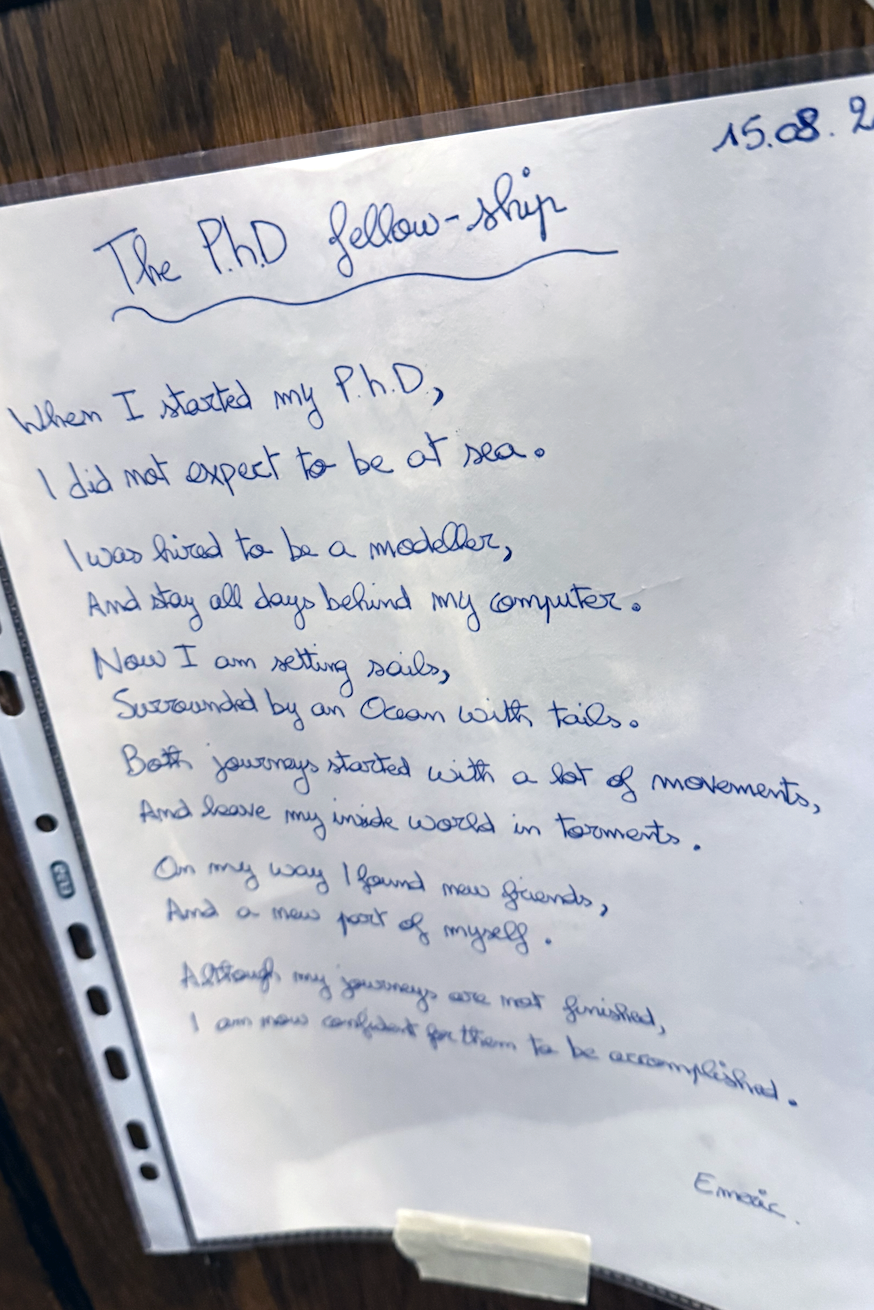 15.08.2
The P.h.D fellow-ship
When I started my P.h.D,
I did not expect to be at sea.
I was hired to be a modeller,
And stay all days behind my computer.
Now I am setting sails,
Surrounded by an Ocean with tails.
Both journeys started with a lot of movements,
And leave my inside world in torments.
On my way I found new friends,
And a new part of myself.
Although my journeys are not finished,
I am now confident for them to be accomplished.
Emeric.